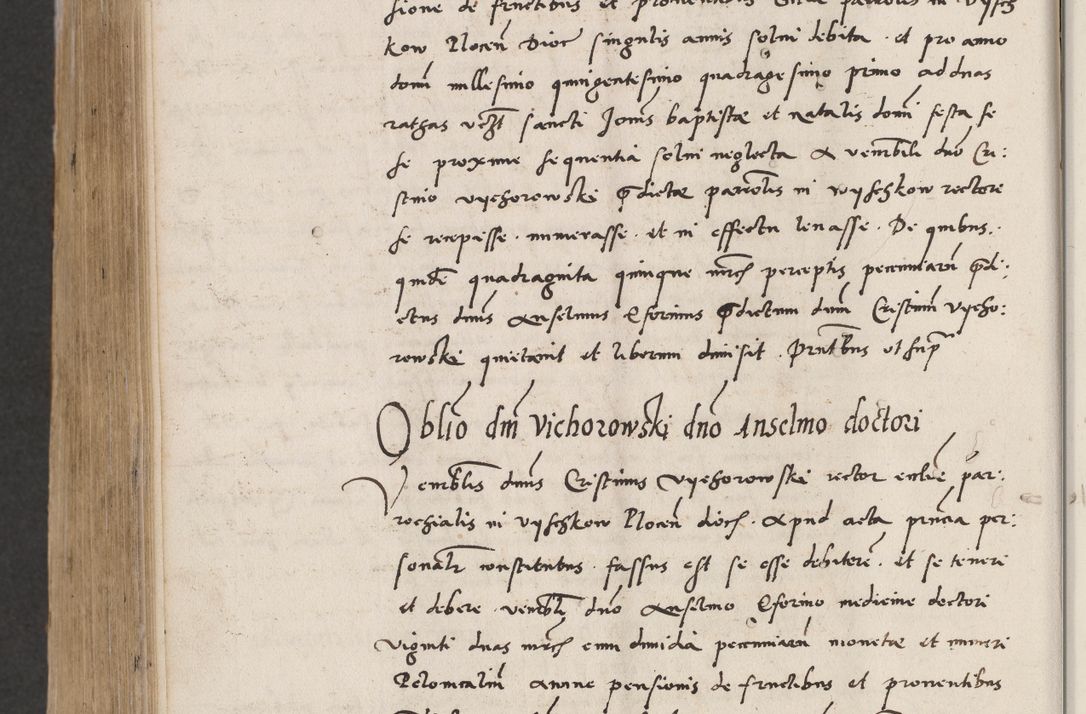 sione de fructibus et proventibus
kow Plocen̄ Dioc̄ singulis annis solui debita · et pro anno
dom̄ millesimo quingentesimo quadragesimo primo ad duas
rathas vz̄ sancti Joan̄is baptistæ et natalis domī festa se
se proxime sequentia solui neglecta a venerabili dno Cri:
stino vychorowski p̄dictæ parrotlis in wyschkow rectore
se recepisse · numerasse · et in effectu leuasse · De quibus ·
quidē quadraginta quinque mrc̄ perceptis pecuniarū p̄di:
ctus dnus Anselmus Eforinus p̄dictum dnm̄ Cristinū vycho:
rowski quietauit et liberum dimisit · Pn̄tibus vt supra
Oblīo dn̄i Vichorowski dn̄o Anselmo doctori
Venerabilis dnus Cristinus vychorowski rector ecclīe par:
rochialis in vyschkow Plocen̄ dioc̄ · Apud acta pn̄tia per:
sonalr̄ constitutus · fassus est se esse debitorē · et se teneri
et debere · venerabili dn̄o Anselmo Eforino medicine doctori
viginti duas mrc̄ cum dimidia pecuniarū monetæ et numeri
Polonicalium annue pensionis de fructibus et prouentibus